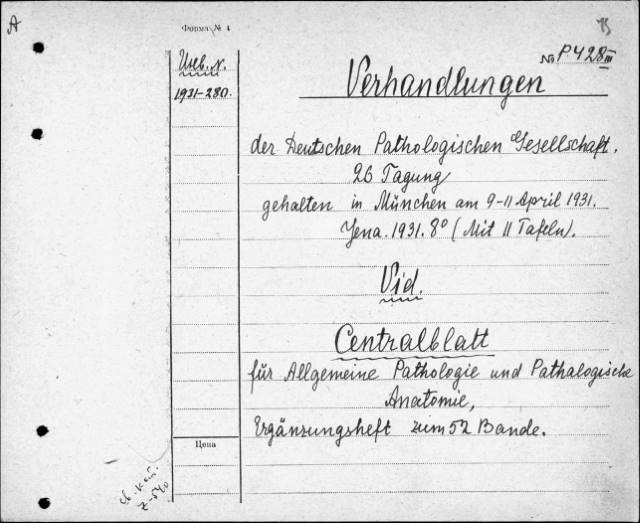 A
Форма № 4
В
Инв. №.
1931-280.
№ P428III
Verhandlungen
der Deutschen Pathologischen Gesellschaft.
26 Tagung
gehalten in München am 9-11 April 1931.
Jena. 1931. 8° (Mit 11 Tafeln).
Vid.
Centralblatt
für Allgemeine Pathologie und Pathalogische
Anatomie,
Ergänzungsheft zum 52 Bande.
Цена